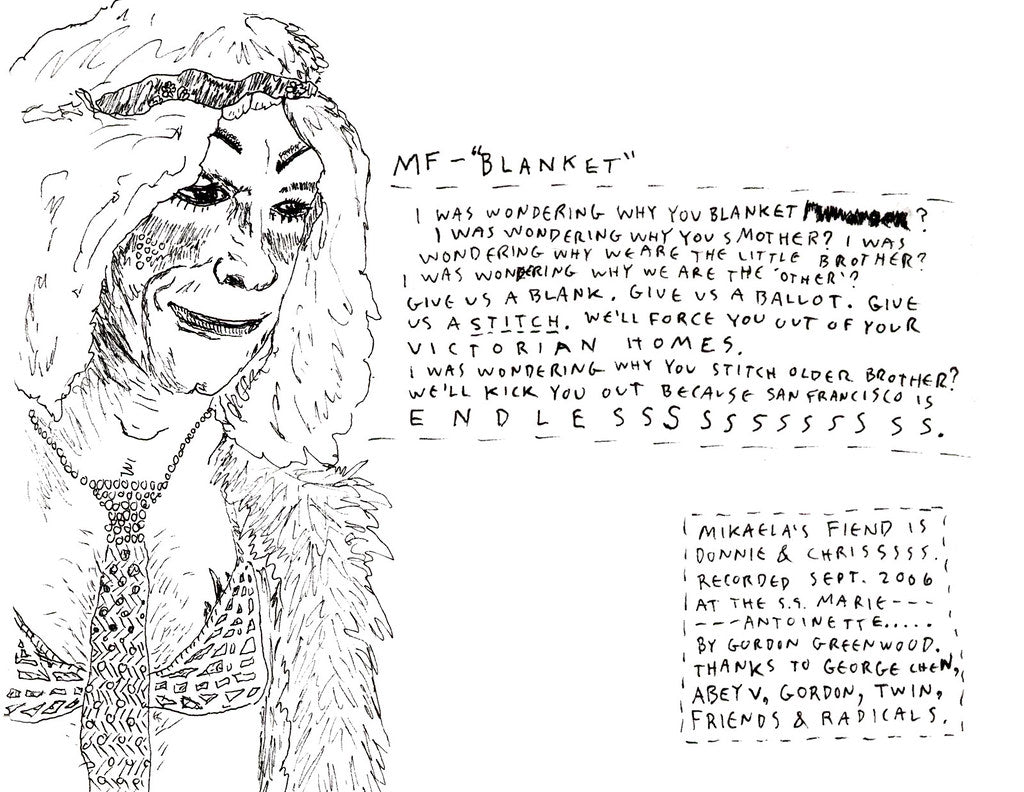 MF - "BLANKET"
I WAS WONDERING WHY YOU BLANKET ?
I WAS WONDERING WHY YOU SMOTHER? I WAS
WONDERING WHY WE ARE THE LITTLE BROTHER?
I WAS WONDERING WHY WE ARE THE 'OTHER'?
GIVE US A BLANK. GIVE US A BALLOT. GIVE
US A STITCH. WE'LL FORCE YOU OUT OF YOUR
VICTORIAN HOMES.
I WAS WONDERING WHY YOU STITCH OLDER BROTHER?
WE'LL KICK YOU OUT BECAUSE SAN FRANCISCO IS
ENDLESSSSSSSSSSS.
MIKAELA'S FIEND IS
DONNIE & CHRISSSSS.
RECORDED SEPT. 2006
AT THE S.S. MARIE----
----ANTOINETTE.....
BY GORDON GREENWOOD.
THANKS TO GEORGE CHEN,
ABEY V, GORDON, TWIN,
FRIENDS & RADICALS.